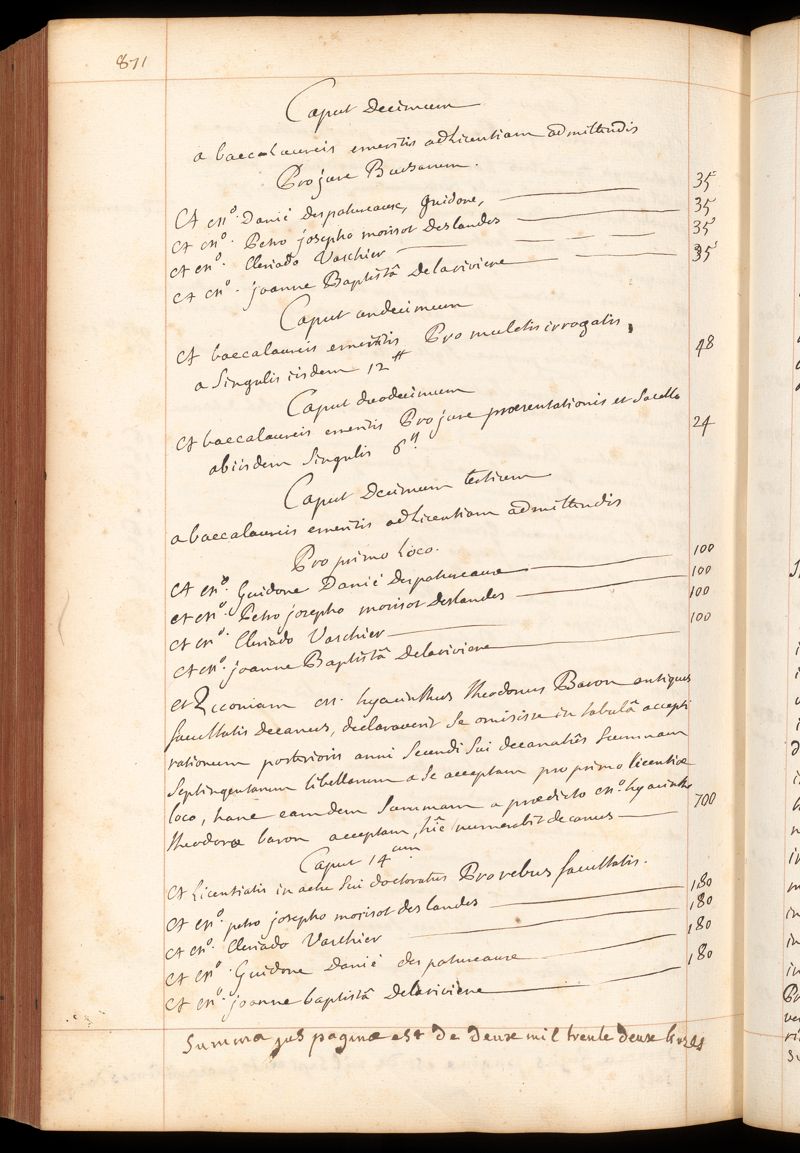 871
Caput Decimum
a baccalaureis emeritis ad licentiam admittendis
Pro jure Bursarum.
A mo. Danié Despatureaux, Guidone, 35
A mo. Petro josepho morisot Deslandes 35
A mo. Cleriado Vaschier 35
A mo. joanne Baptistâ Delarivierre 35
Caput undecimum
A baccalaureis emeritis Pro mulctis irrogatis,
a Singulis iisdem 12tt 48
Caput duodecimum
A baccalaureis emeritis Pro jure praesentationis et Sacello
ab iisdem Singulis 6tt. 24
Caput Decimum tertium
a baccalaureis emeritis ad licentiam admittendis
Pro primo Loco.
A mo. Guidone Danié Despatureaux 100
A mo. Petro josepho morisot Deslandes 100
A mo. Cleriado Vaschier 100
A mo. joanne Baptistâ Delarivierre 100
et Quoniam m. hyacinthus theodorus Baron antiquus
facultatis Decanus, declaraverit Se omisisse in tabulâ accepti
rationum posterioris anni Secundi Sui decanatûs Summam
Septingentarum libellarum a Se acceptam pro primo licentiae
loco, hanc eamdem Summam a praedicto mo. hyacintho
theodoro baron acceptam, hîc numerabit decanus 700
Caput 14um.
A Licentiatis in actu Sui doctoratus Pro rebus facultatis.
A mo. petro josepho morisot deslandes 180
A mo. Cleriado Vaschier 180
A mo. Guidone Danié despatureaux 180
A mo. joanne baptistâ Delarivierre 180
Summa jus paginae est de deux mil trente deux livres